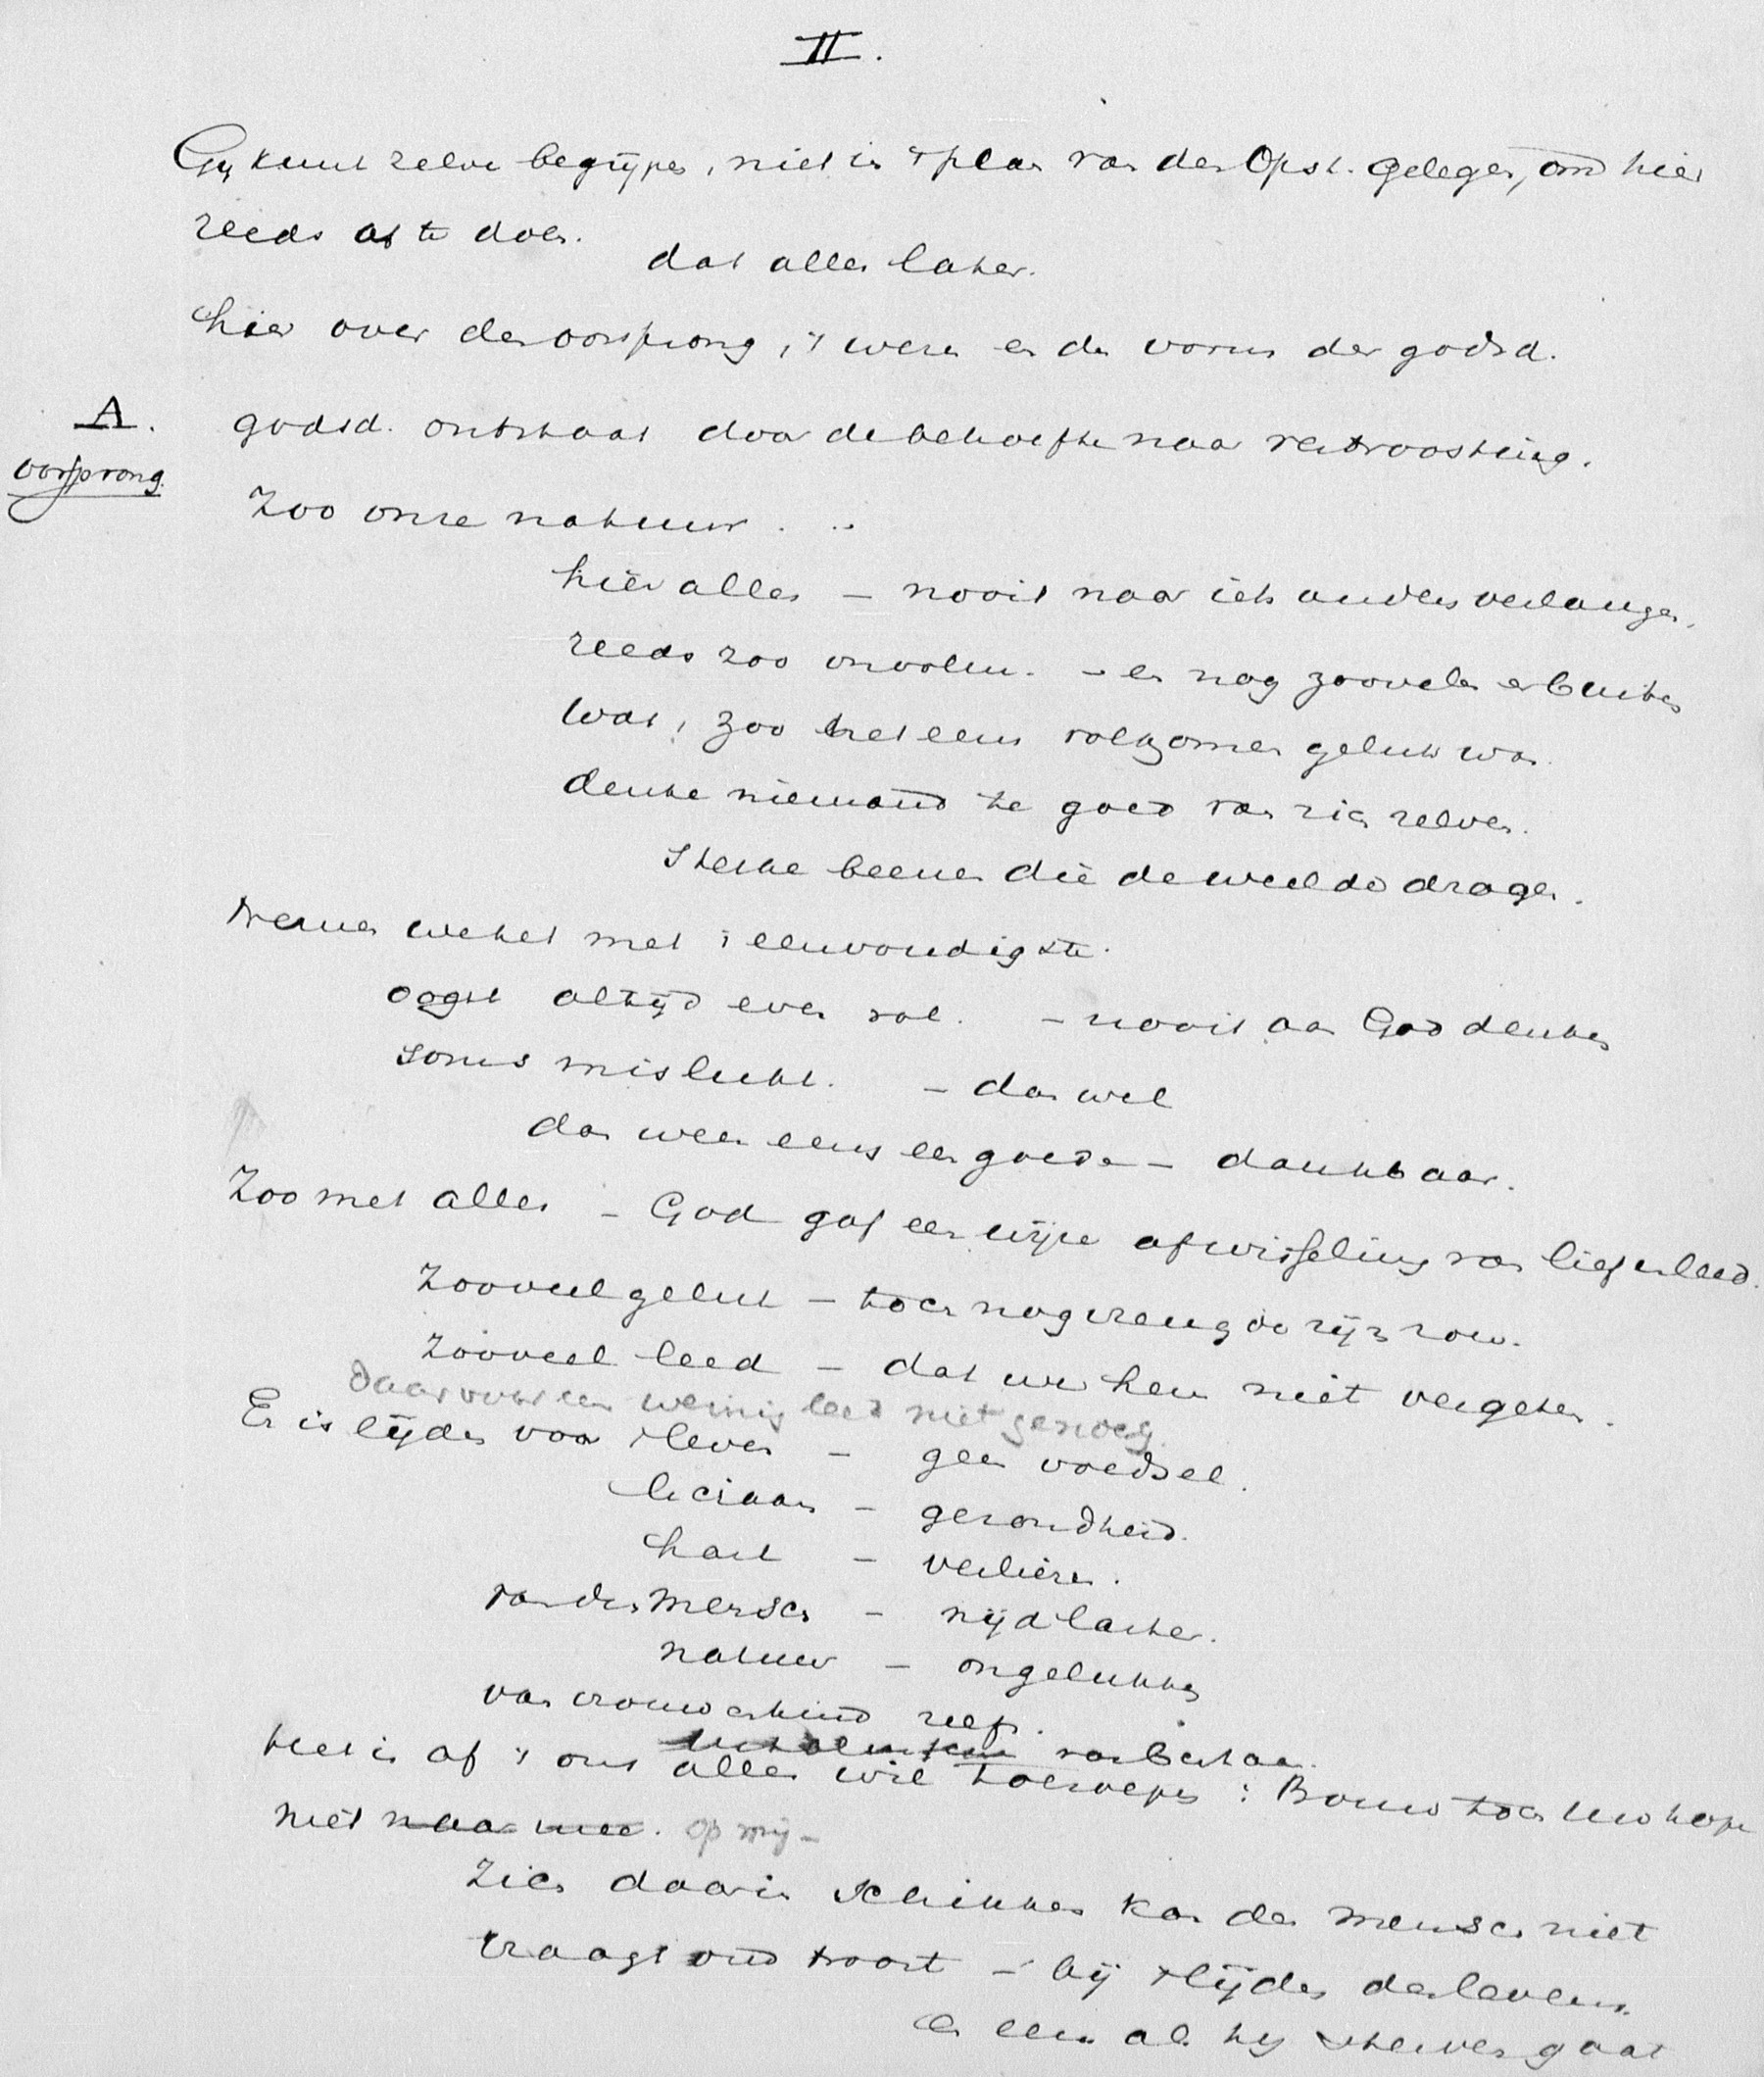 II.
Gij kunt zelve begrijpen, niet in 't plan van den Opst. gelegen, om hier
reeds af te doen.
dat alles later.
hier over den oorsprong, 't wezen en den vorm der godsd.
A.
oorsprong.
godsd. ontstaat door de behoefte naar vertroosting.
Zoo onze natuur . ..
hier alles – nooit naar iets anders verlangen.
reeds zoo onvolm. – en nog zoovelen er buiten
Wat, zoo het eens volkomen geluk was.
denke niemand te goed van zich zelven.
Sterke beenen die de weelde dragen.
met 't eenvoudigste.
oogst altijd even vol. – nooit aan God denken
soms mislukt. – dan wel
dan weer eens een goede – dankbaar.
Zoo met alles – God gaf een wijze afwisseling van lief en leed.
Zooveel geluk – toch nog vreugde zijn zou.
Zooveel leed – dat we hem niet vergeten.
daarvoor een weinig leed niet genoeg.
Er is lijden voor 't leven – geen voedsel.
lichaam – gezondheid.
hart – verliezen.
van den mensch – nijd laster.
natuur – ongelukken
van vrouw en kind zelfs.
van bestaan.
het is of 't ons alles wil toeroepen : Bouw toch uw hoop
niet naar mee. op mij –
Zich daarin schikken kan de mensch niet
vraagt om troost – bij 't lijden des levens.
en eens als hij sterven gaat